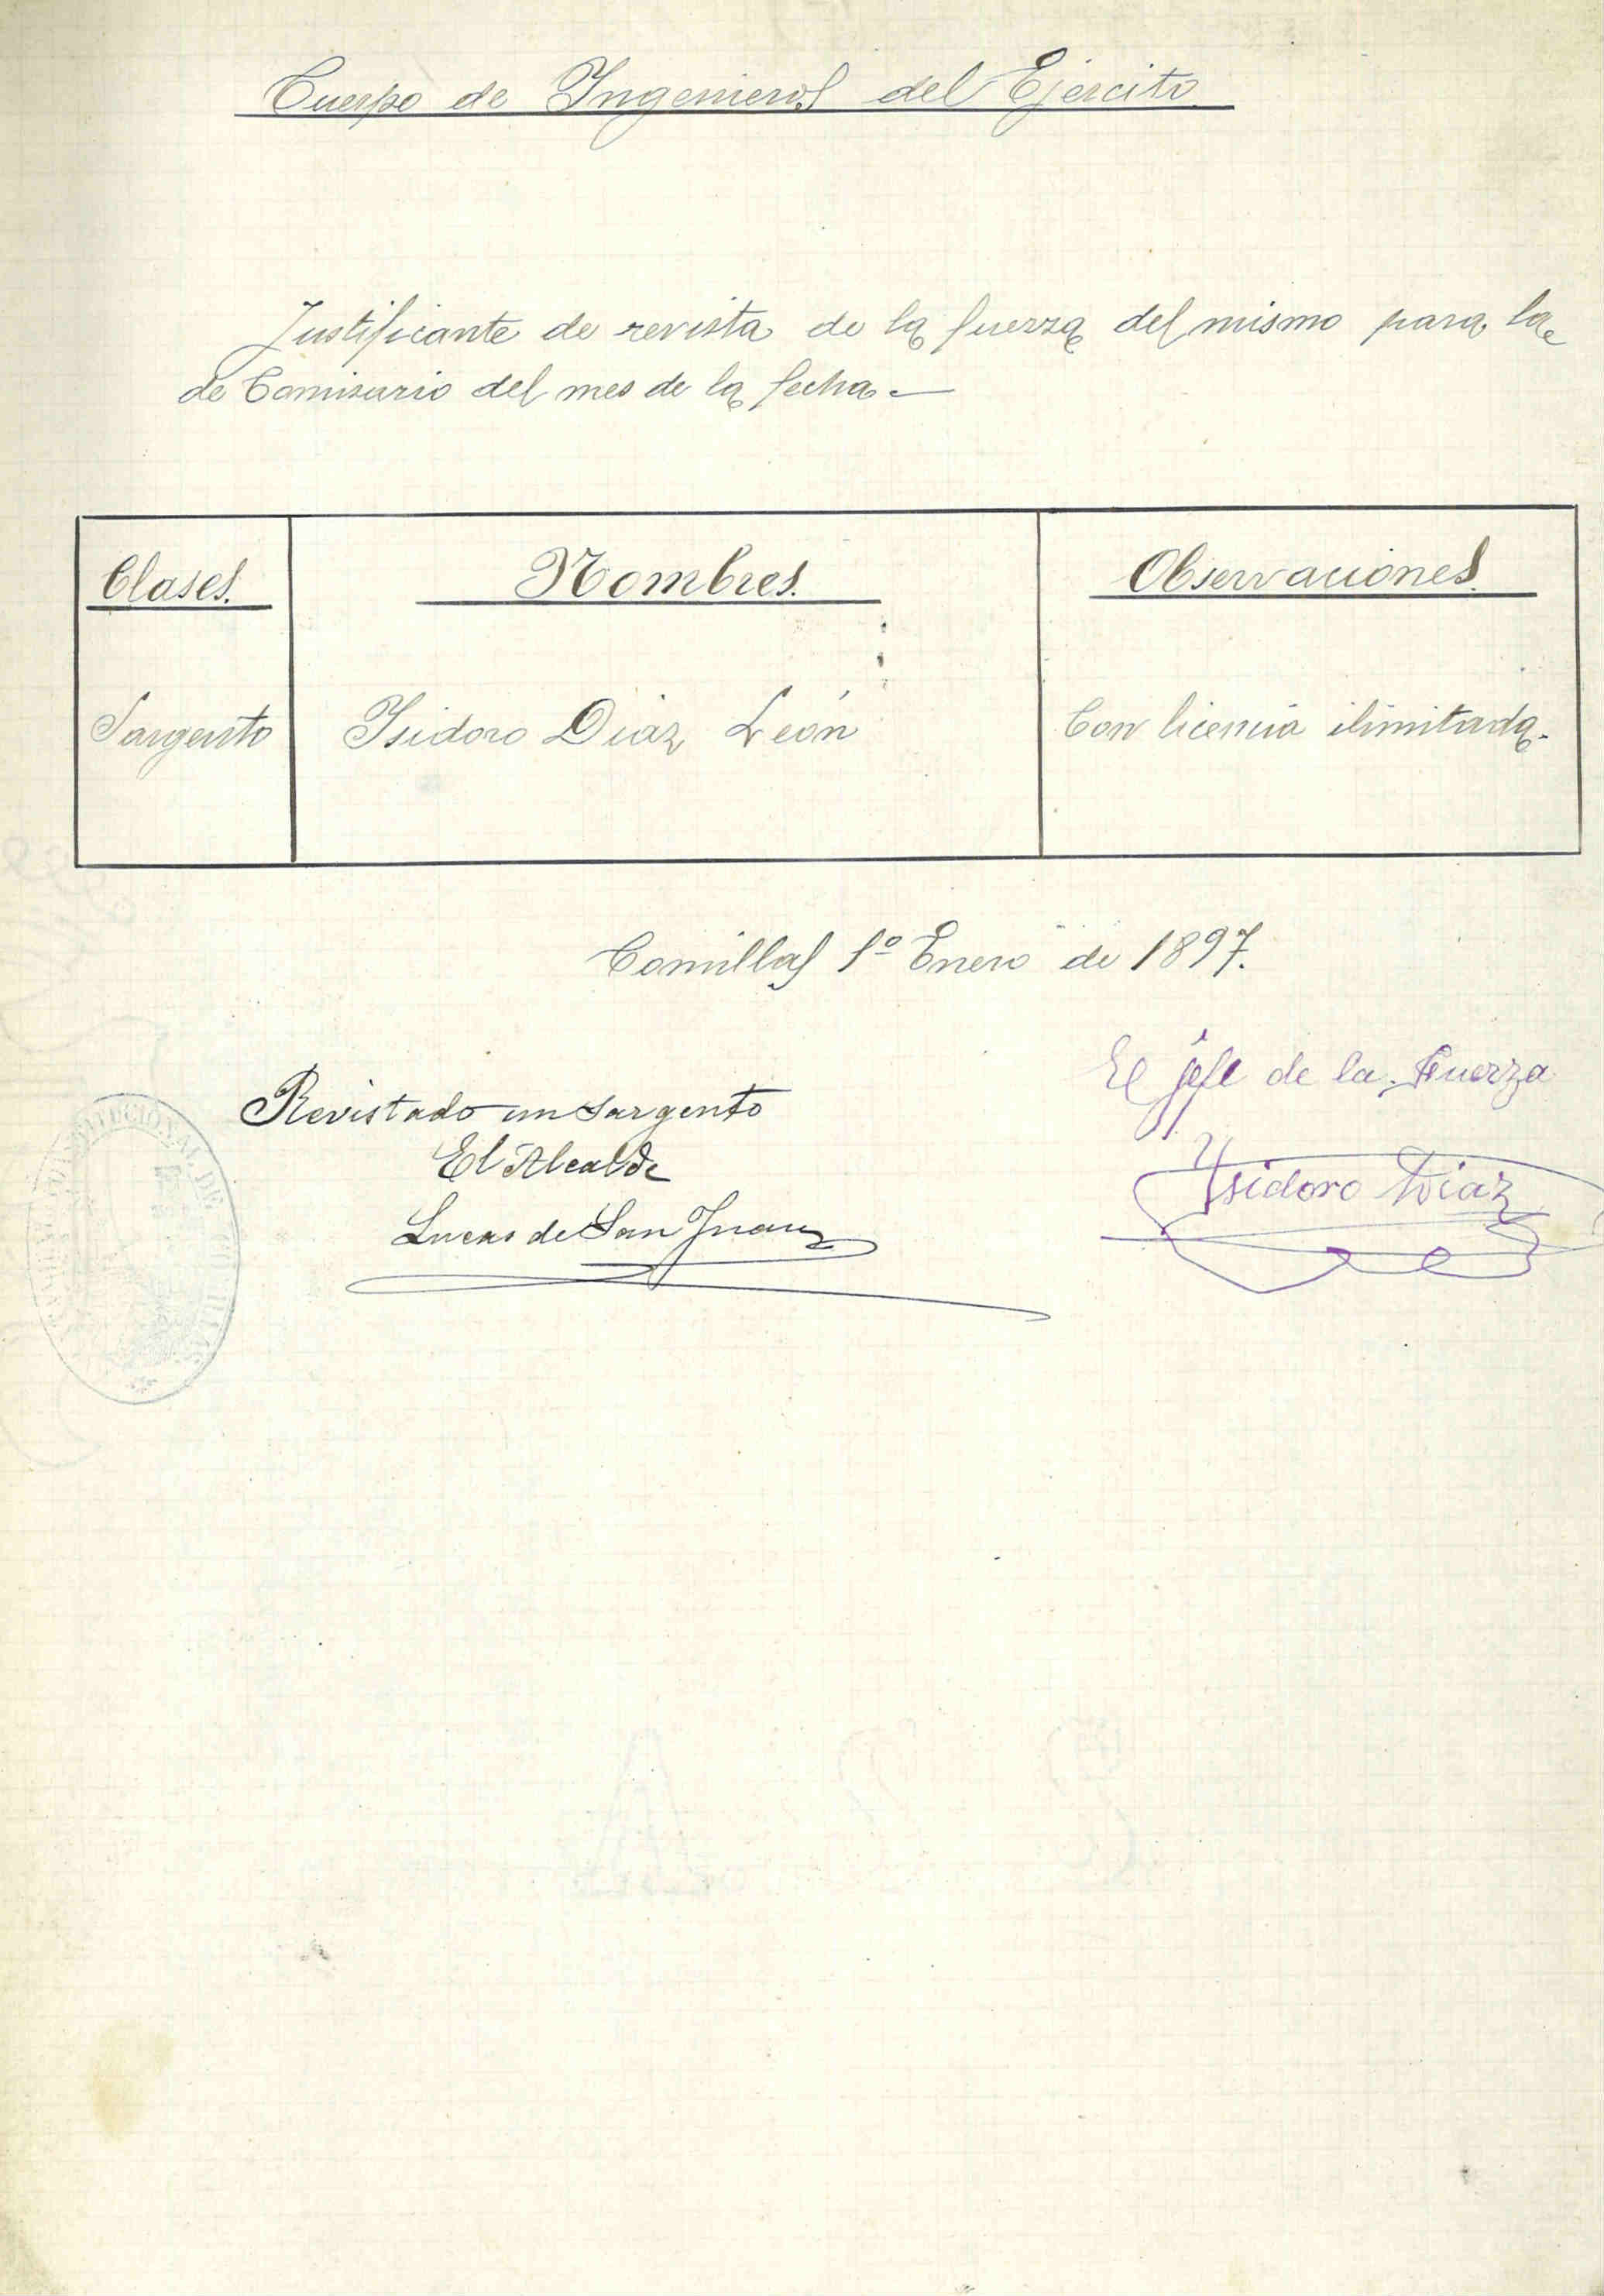 Cuerpo de Ingenieros del Ejército
Justificante de revista de la fuerza del mismo para la
de Comisario del mes de la fecha.—
Clases. Nombres. Observaciones.
Sargento Isidoro Diaz León Con licencia ilimitada.
Comillas 1º Enero de 1897.
El jefe de la Fuerza
Revistado un sargento
El Alcalde
Ysidoro Diaz
Lucas de San Juan
CONSTITUCIONAL DE COMILLAS